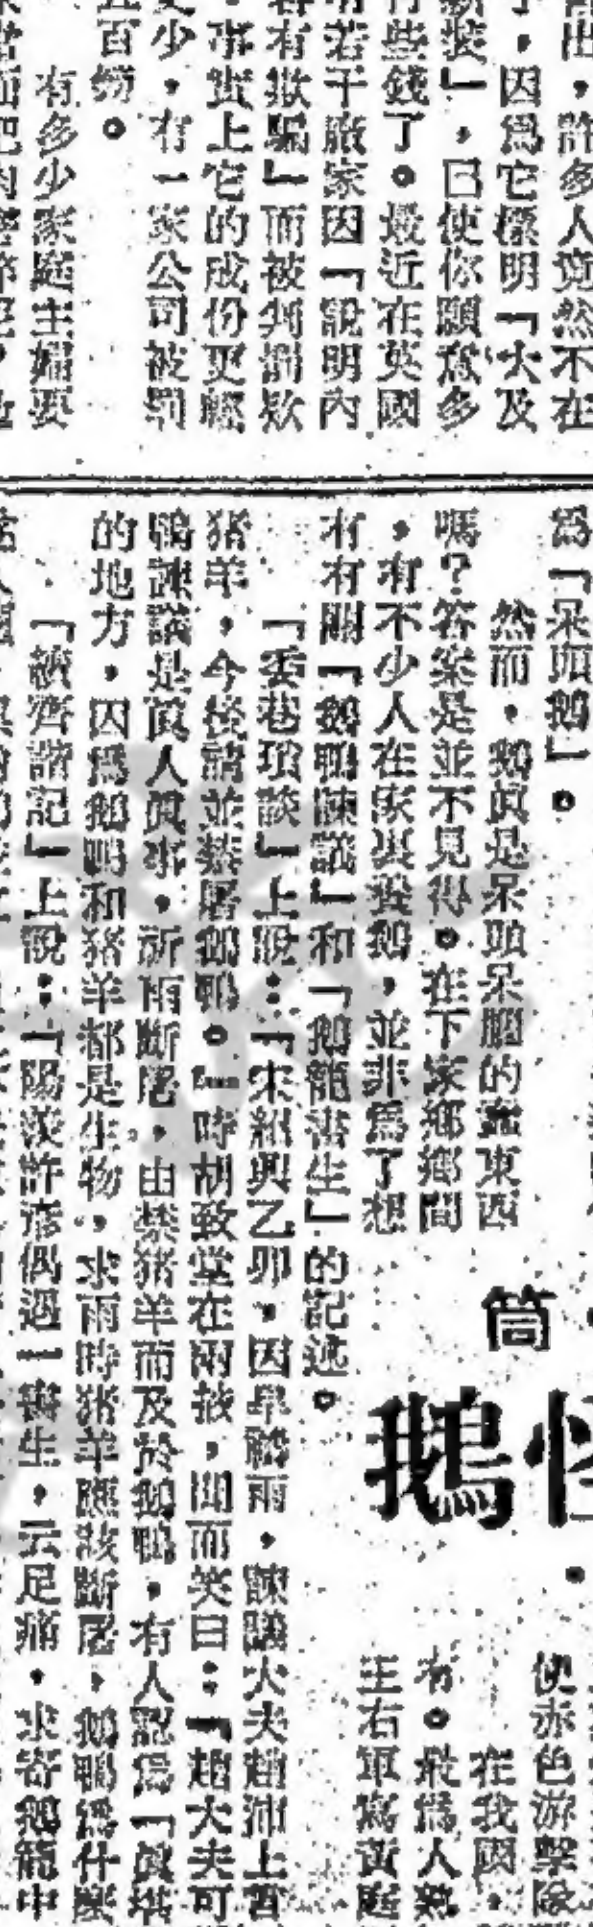 出,許多人竟然不在
,因爲它標明「大及
新裝」,已使你願意多
些錢了。最近在英國
若干廠家因「說明內
容有欺騙」而被判罰款
,事實上它的成份更輕
更少,有一家公司被罰
五百鎊。
有多少家庭主婦要
爲「呆頭鵝」。
然而,鵝眞是呆頭呆腦的蠢東西
嗎?答案是並不見得。在下家鄉鄉間
,有不少人在家裏養鵝,並非爲了想
有有關「鵝鴨諫議」和「鵝籠書生」的記述。
「委巷瑣談」上說:「宋紹興乙卯,因旱禱雨,諫議大夫趙沛上言
猪羊,今後請並禁屠鵝鴨。」時胡致堂在兩掖,聞而笑曰:「趙大夫可
鴨諫議是眞人眞事,祈雨斷屠,由禁猪羊而及於鵝鴨,有人認爲「眞堪
的地方,因爲鵝鴨和猪羊都是生物,求雨時猪羊應該斷屠,鵝鴨爲什麼
「續齊諧記」上說:「陽羨許彥偶遇一書生,云足痛,求寄鵝籠中
筒
怪
鵝
使赤色游擊隊
在我國,
有。最爲人熟
王右軍寫黃庭